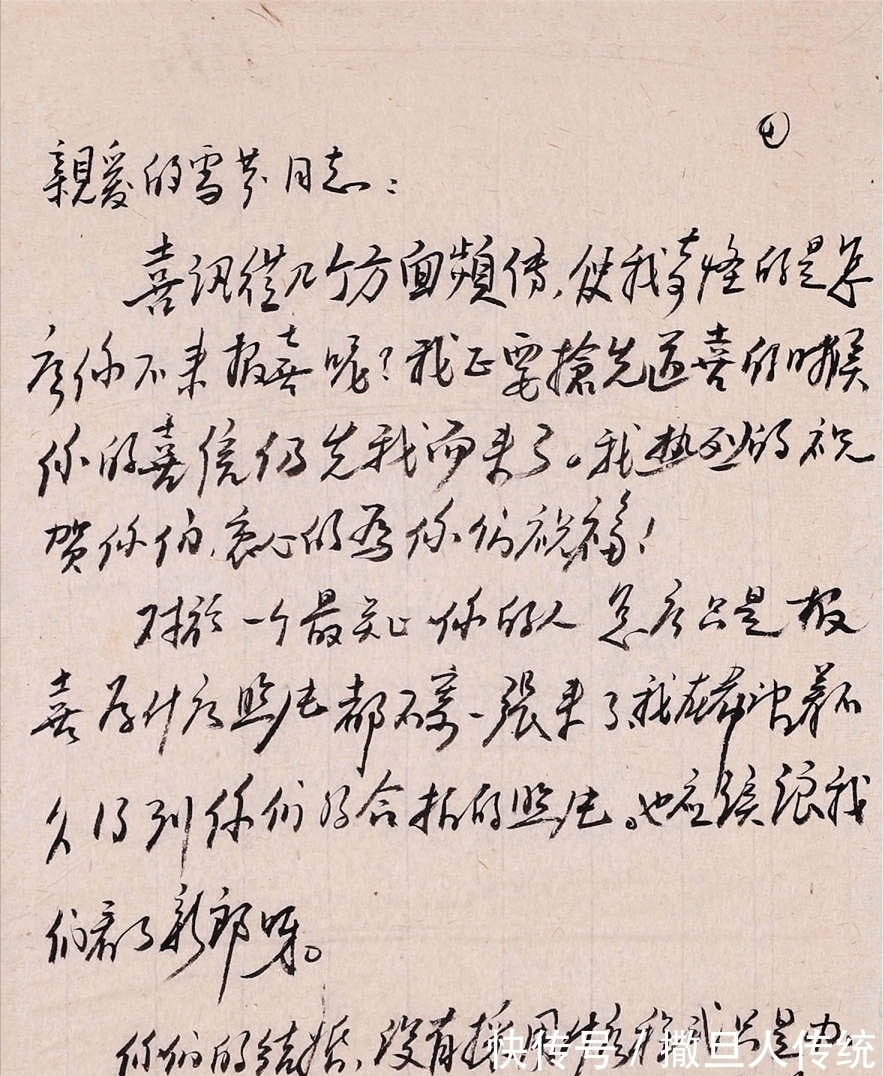 親爱的雪芬同志：
喜訊從几个方面頻傳，使我奇怪的是怎
么你不来报喜呢？我正要搶先道喜的时候
你的喜信仍先我而来了。我热烈的祝
贺你们，衷心的為你们祝福！
对於一个最关心你的人怎么只是报
喜为什么照片都不寄一張来了，我在希望着不
久得到你们的合拍的照片。也应該讓我
们看了新郎呀。
你们的结婚，没有採用什么
快传号 / 撒旦人传统